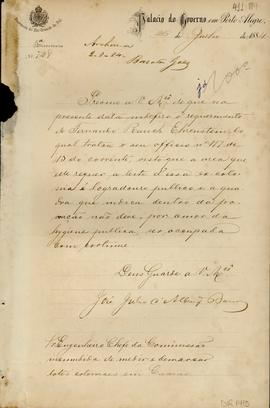 Palacio do Governo em Porto Alegre,
de Junho de 1884
N.
Archive-se
Previno a V. Mcê de que na
presente data indefiro o requerimento
de Fernando
qual tratou o seu officio n.º 117 de
13 do corrente, visto que a area que
elle requer a leste d'essa ex-colo-
nia é logradouro publico e a qua-
dra que indica dentro da po-
voação não deve, por amor da
hygiene publica, ser occupada
com cortume.
Deus Guarde a V. Mcê
José Julio d'Albuqe Barros
Engenheiro Chefe da Commissão
incumbida de medir e demarcar
lotes coloniaes em Caxias